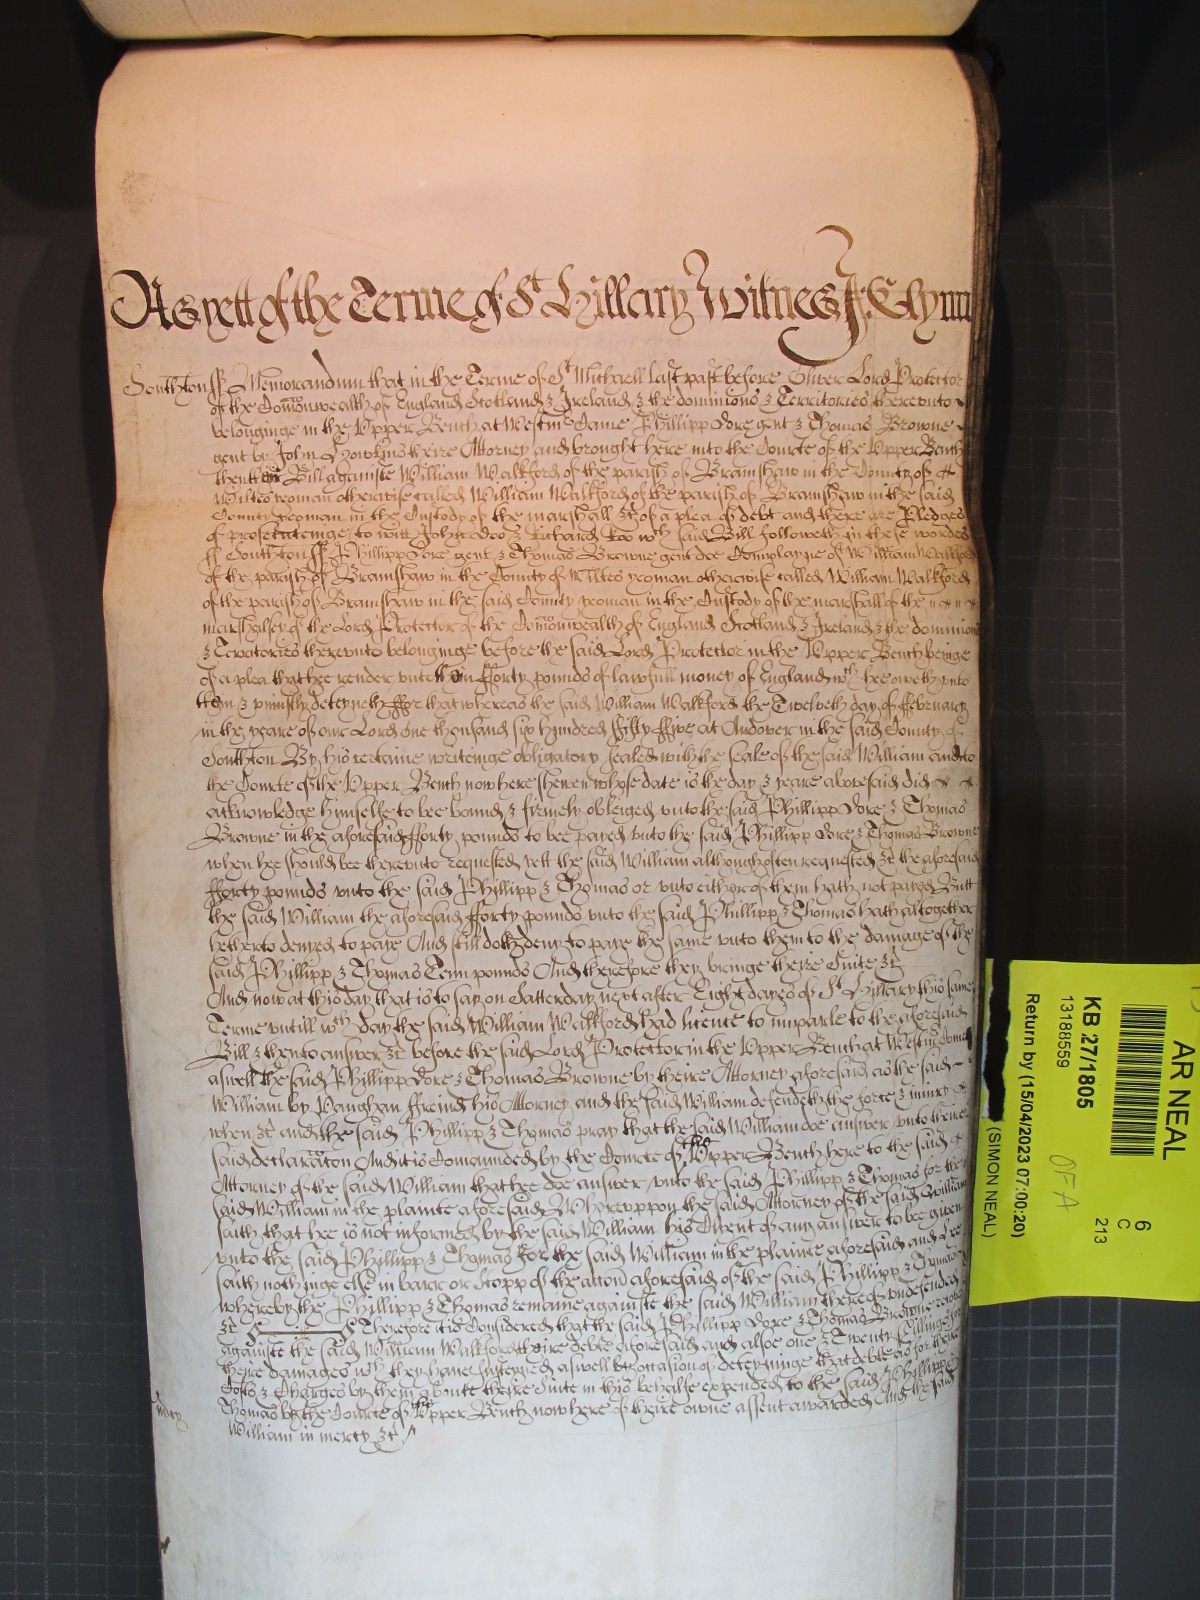 As yett of the Terme of St Hillary Witnes J: Glynn
Southton ss Memorandum that in the Terme of St Michaell last past before Oliver Lord Protector
of the Comonwealth of England Scotland & Ireland & the dominions & Territories thereunto
belonginge in the Upper Bench at Westmr Came Phillipp Dore gent & Thomas Browne
gent by John Hawkins theire Attorney and brought here into the Courte of the Upper Bench
then their Bill againste William Walkford of the parish of Bramshaw in the County of
Wiltes yeoman otherwise called William Walkford of the parish of Bramshaw in the said
County yeoman in the Custody of the marshall &c of a plea of debt and there are Pledges
of prosecuteinge to witt John Doo & Richard Roo wch said Bill followeth in these wordes
ss Southton ss Phillipp Dore gent & Thomas Browne gent doe Complayne of William Walkford
of the parish of Bramshaw in the County of Wiltes yeoman otherwise called William Walkford
of the parish of Bramshaw in the said County yeoman in the Custody of the marshall of the
marshalsey of the Lord Protector of the Comonwealth of England Scotland & Ireland & the dominions
& Territories thereunto belonginge before the said Lord Protector in the Upper Bench beinge
of a plea that hee render unto them fforty pounds of lawfull money of England wch hee oweth unto
them & uniustly deteyneth ffor that whereas the said William Walkford the Twelveth day of ffebruary
in the yeare of our Lord one thousand six hundred fifty ffive at Andover in the said County of
Southton By his certaine writeinge obligatory sealed with the seale of the said William and to
the Courte of the Upper Bench now here shewen whose date is the day & yeare abovesaid did
acknowledge himselfe to bee bound & firmely obleiged unto the said Phillipp Dore & Thomas
Browne in the aforesaid fforty pounds to bee payed unto the said Phillipp Dore & Thomas Browne
when hee should bee thereunto requested yett the said William although often requested &c the aforesaid
fforty pounds unto the said Phillipp & Thomas or unto either of them hath not payed Butt
the said William the aforesaid fforty pounds unto the said Phillipp & Thomas hath altogether
hetherto denyed to paye And still doth deny to paye the same unto them to the damage of the
said Phillipp & Thomas Tenn pounds And therefore they bringe theire Suite &c
And now at this day that is to say on Satterday next after Eight dayes of St Hillary this same
Terme untill wch day the said William Walkford had licence to imparle to the aforesaid
Bill & then to answer &c before the said Lord Protector in the Upper Bench at Westmr Come
aswell the said Phillipp Dore & Thomas Browne by theire Attorney aforesaid as the said
William by Vaughan ffreind his Attorney and the said William defendeth the force & iniury
when &c and the said Phillipp & Thomas pray that the said William doe answer unto theire
said declaracon And it is Comaunded by the Courte of the Upper Bench here to the said
Attorney of the said William that hee doe answer unto the said Phillipp & Thomas for the
said William in the plainte aforesaid Whereuppon the said Attorney of the said William
saith that hee is not informed by the said William his Client of any answer to bee given
unto the said Phillipp & Thomas for the said William in the plainte aforesaid and hee
saith nothinge else in barr or Stopp of the accon aforesaid of the said Phillipp & Thomas
whereby the Phillipp & Thomas remaine againste the said William thereof undefended
&c Therefore it is Considered that the said Phillipp Dore & Thomas Browne recover
againste the said William Walkford theire debte aforesaid and alsoe one & Twenty shillings for
theire damages wch they have susteyned aswell by occasion of deteyninge that debte as for theire
Costs & Charges by them aboute theire Suite in this behalfe expended to the said Phillipp &
Thomas by the Courte of the Upper Bench now here of theire owne assent awarded And the said
William in mercy &c
AR NEAL
6
C
213
KB 27/1805
13188559
Return by (15/04/2023 07:00:20)
(SIMON NEAL)
OFA